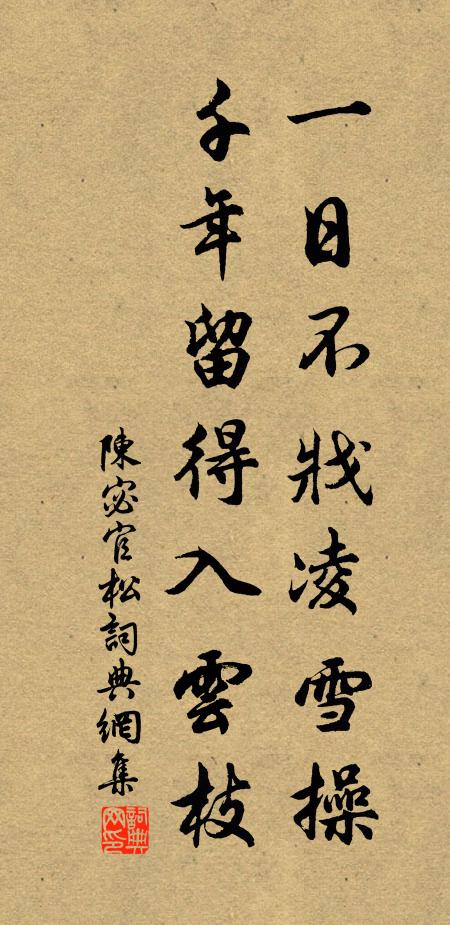 一日不戕凌雪操
千年留得入雲枝
陳宓官松詞典網集
詞典网印